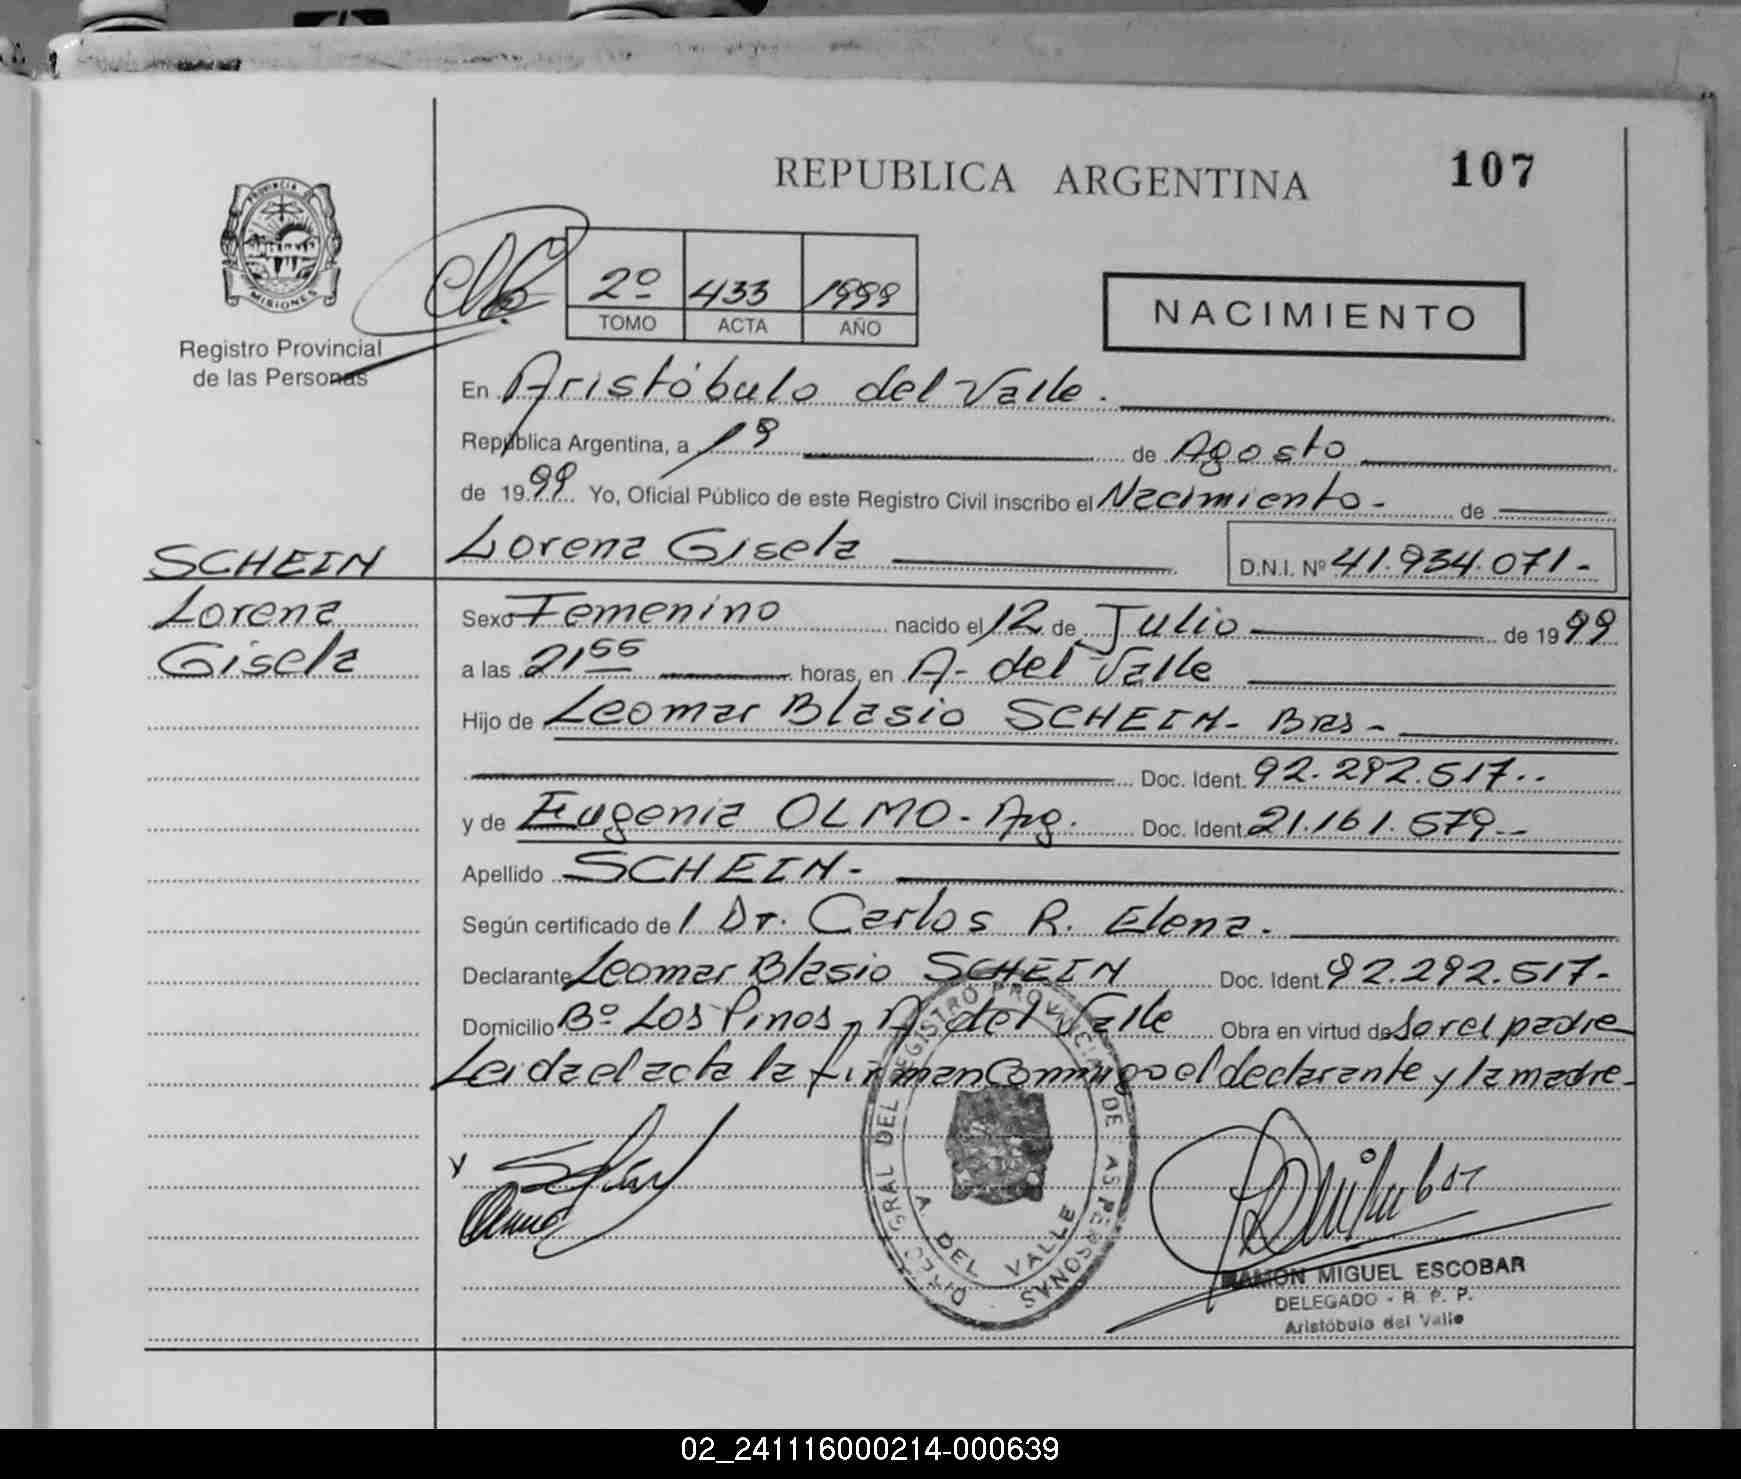 REPUBLICA ARGENTINA
107
PROVINCIA DE
MISIONES
Registro Provincial
de las Personas
2º 433 1999
TOMO ACTA AÑO
NACIMIENTO
En Aristóbulo del Valle.
República Argentina, a 19 de Agosto
de 1999 Yo, Oficial Público de este Registro Civil inscribo el Nacimiento - de
Lorena Gisela D.N.I. Nº 41.934.071-
SCHEIN
Lorena
Gisela
Sexo Femenino nacido el 12 de Julio de 1999
a las 21 55 horas, en A- del Valle
Hijo de Leomar Blasio SCHEIN- Bras-
Doc. Ident. 92.292.517--
y de Eugenia OLMO- Arg. Doc. Ident. 21.161.579--
Apellido SCHEIN-
Según certificado de l Dr. Carlos R. Elena-
Declarante Leomar Blasio SCHEIN Doc. Ident. 92.292.517-
Domicilio Bº Los Pinos, A del Valle Obra en virtud de Ser el padre
Leida el acta la firman Conmigo el declarante y la madre-
DIREC. GRAL DEL REGISTRO PROVINCIAL DE LAS PERSONAS
A. DEL VALLE
RAMON MIGUEL ESCOBAR
DELEGADO - R. P. P.
Aristóbulo del Valle
02_241116000214-000639